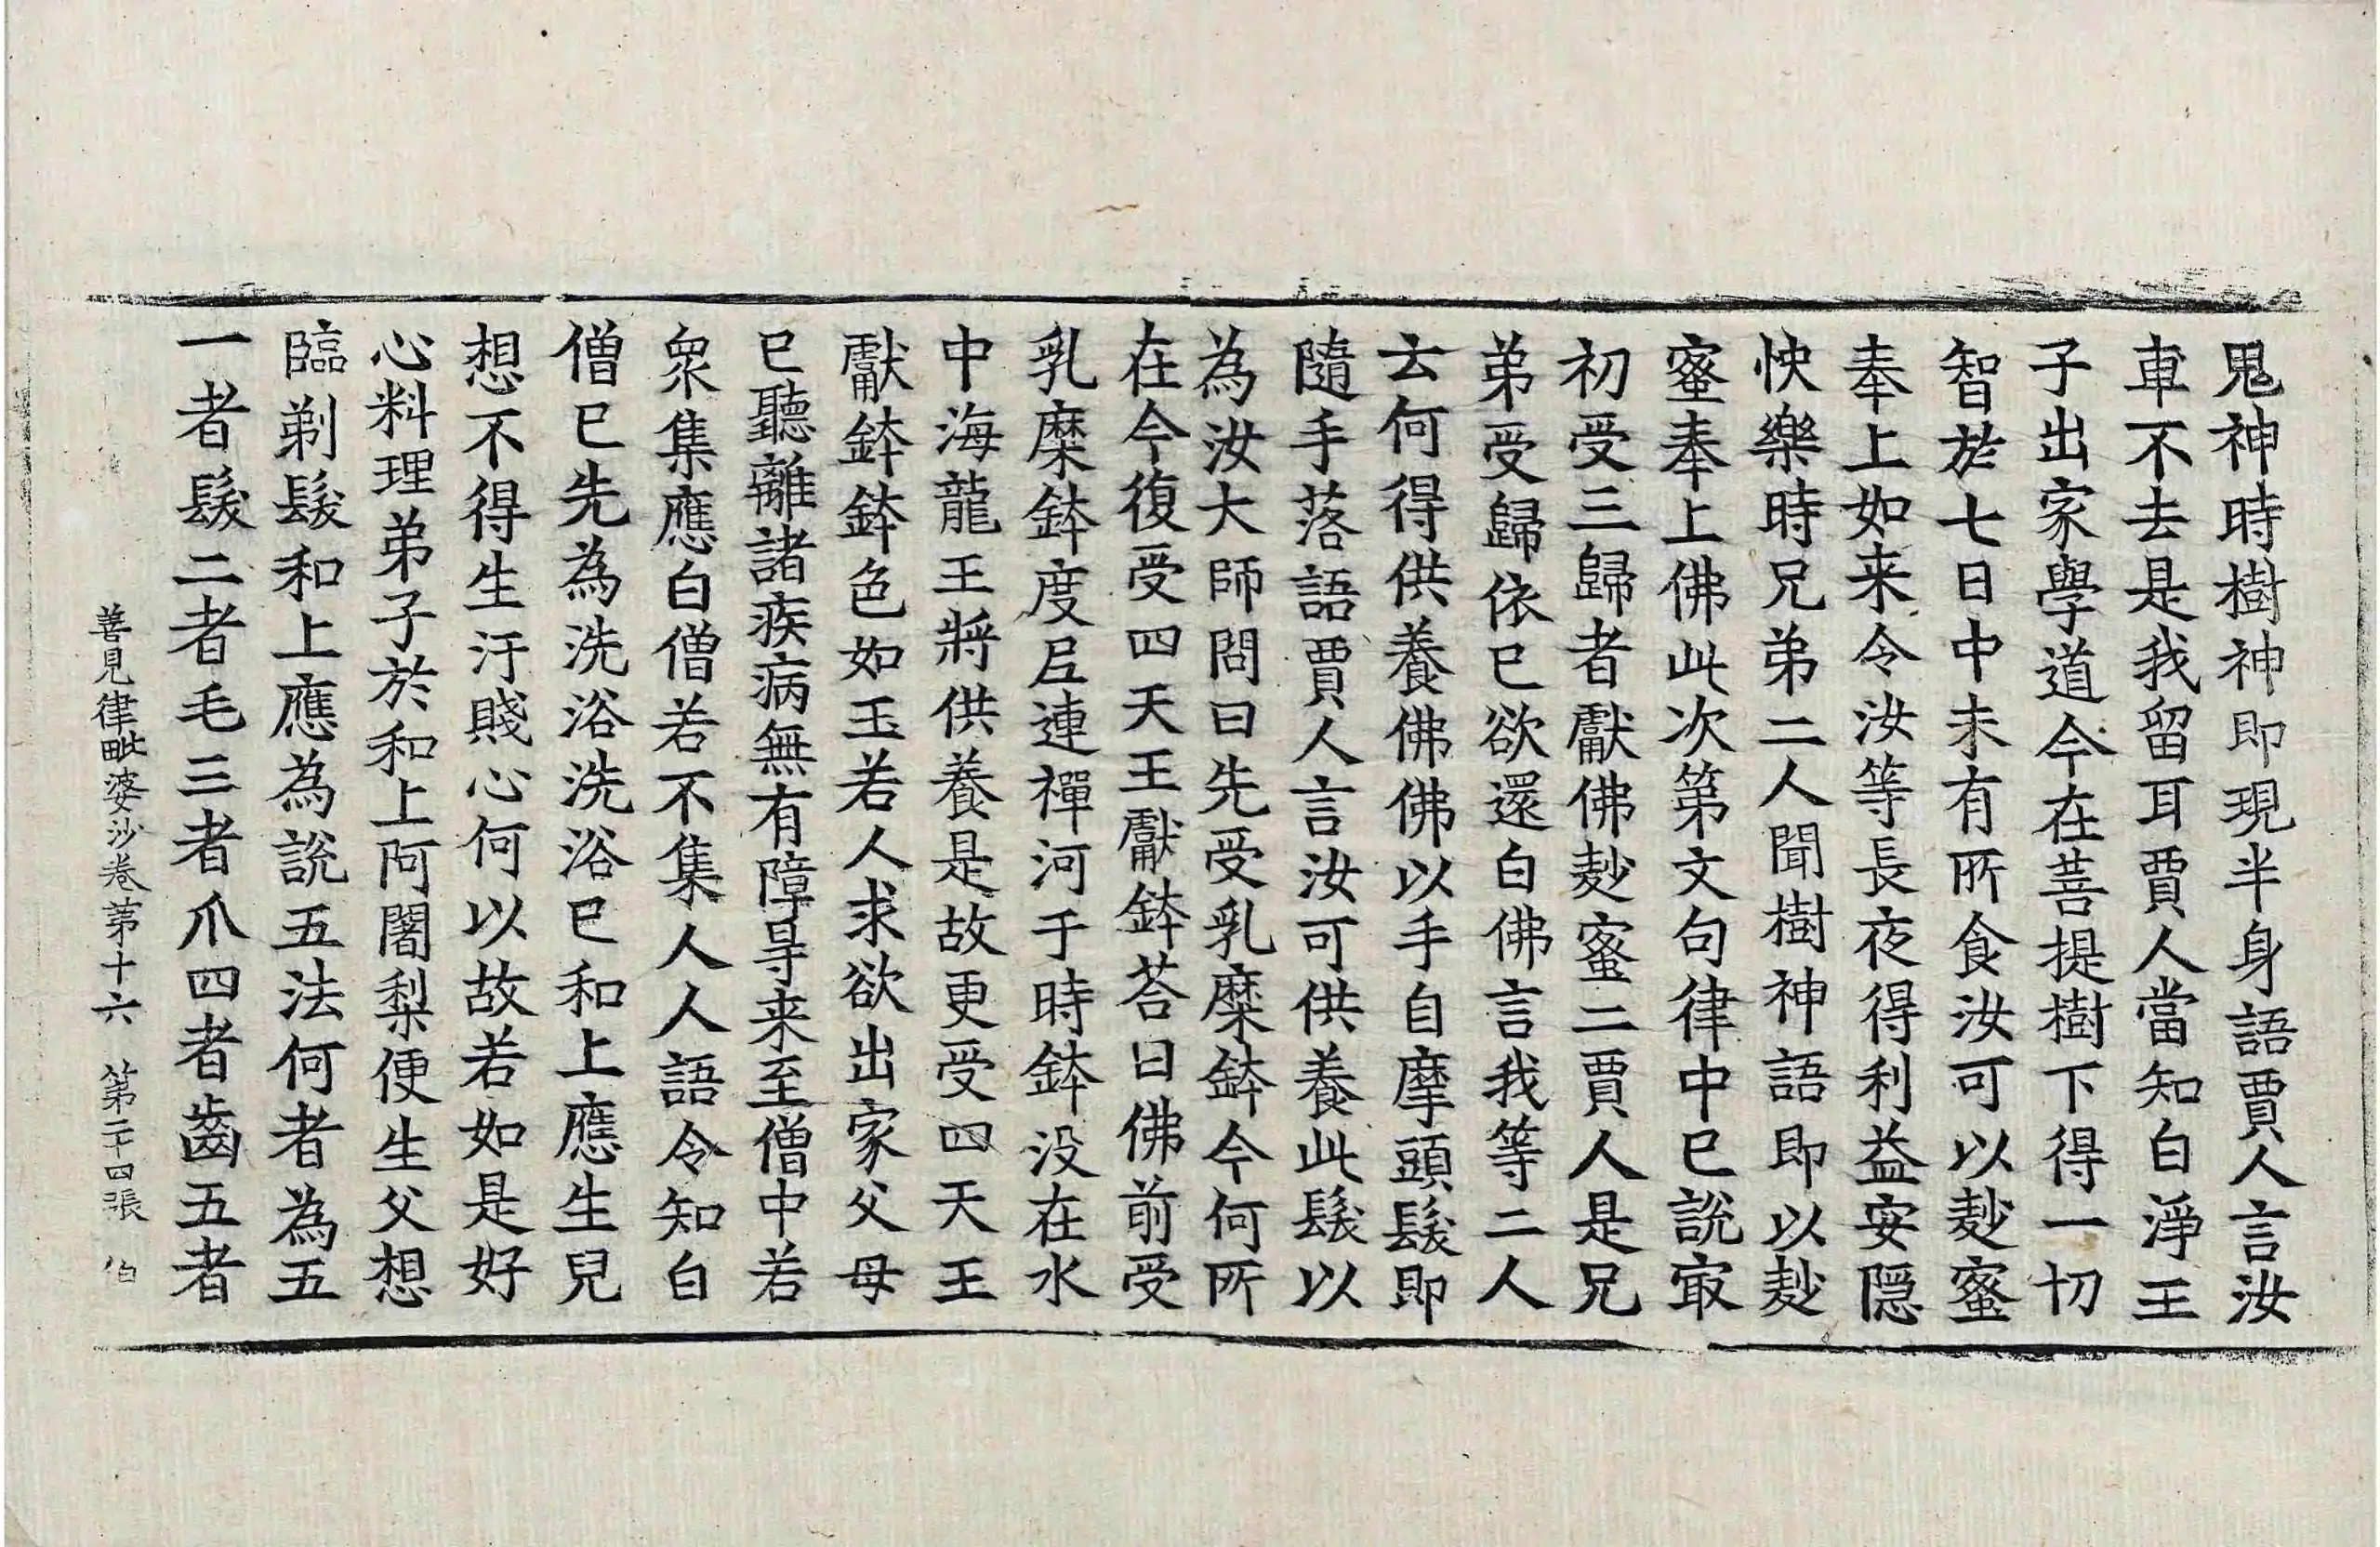 鬼神時樹神即現半身語賈人言汝
車不去是我留耳賈人當知白淨王
子出家學道今在菩提樹下得一切
智於七日中未有所食汝可以麨蜜
奉上如来令汝等長夜得利益安隱
快樂時兄弟二人聞樹神語即以麨
蜜奉上佛此次第文句律中已説㝡
初受三歸者獻佛麨蜜二賈人是兄
弟受歸依已欲還白佛言我等二人
云何得供養佛佛以手自摩頭髮即
隨手落語賈人言汝可供養此髮以
為汝大師問曰先受乳糜鉢今何所
在今復受四天王獻鉢荅曰佛前受
乳糜鉢度𡰱連禪河于時鉢没在水
中海龍王將供養是故更受四天王
獻鉢鉢色如玉若人求欲出家父母
已聽離諸疾病無有障㝵来至僧中若
衆集應白僧若不集人人語令知白
僧已先為洗浴洗浴已和上應生兒
想不得生汙賤心何以故若如是好
心料理弟子於和上阿闍梨便生父想
臨剃髮和上應為説五法何者為五
一者髮二者毛三者爪四者齒五者
善見律毗婆沙卷第十六　第二十四張　伯